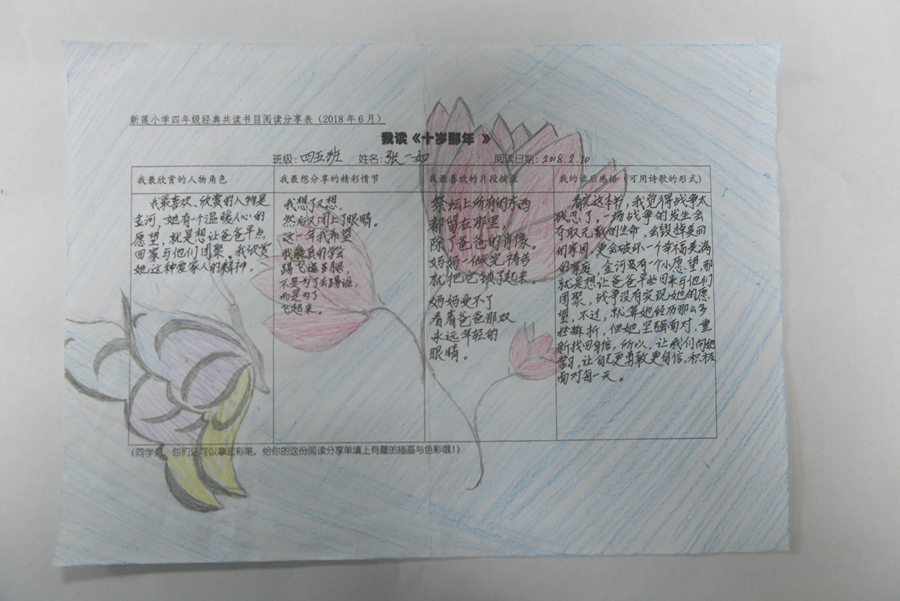 新莲小学四年级经典共读书目阅读分享表（2018年6月）
我读《十岁那年 》
班级：四五班 姓名：张一如 阅读日期：2018.2.10
我最欣赏的人物角色
我最喜欢、欣赏的人物是
金河，她有个温暖人心的
愿望，就是想让爸爸早点
回家与他们团聚。我欣赏
她这种爱家人的精神。
我最想分享的精彩情节
我想了又想，
然后又闭上了眼睛。
这一年我希望
我能真的学会
踢飞遥各腿，
不是为了去踢谁，
而是为了
飞起来。
我最喜欢的片段摘录
祭坛上所有的东西
都留在那里，
除了爸爸的肖像。
妈妈一做完祷告
就把它锁了起来。
妈妈受不了
看着爸爸那双
永远年轻的
眼睛。
我的读后感悟（可用诗歌的形式）
看完这本书，我觉得战争太
残忍了，一场战争的发生会
夺取无数的生命，会毁掉美丽
的家园，更会破坏一个幸福美满
的家庭。金河只有一个小愿望，那
就是想让爸爸早些回来与他们
团聚，战争没有实现她的愿
望。不过，就算她经历那么多
挫折，但她坚强面对，重
新找回自信，所以，让我们向她
学习，让自己更勇敢更自信，积极
面对每一天。
（同学们，你们还可以拿起彩笔，给你的这份阅读分享单填上有趣的插画与色彩哦！）